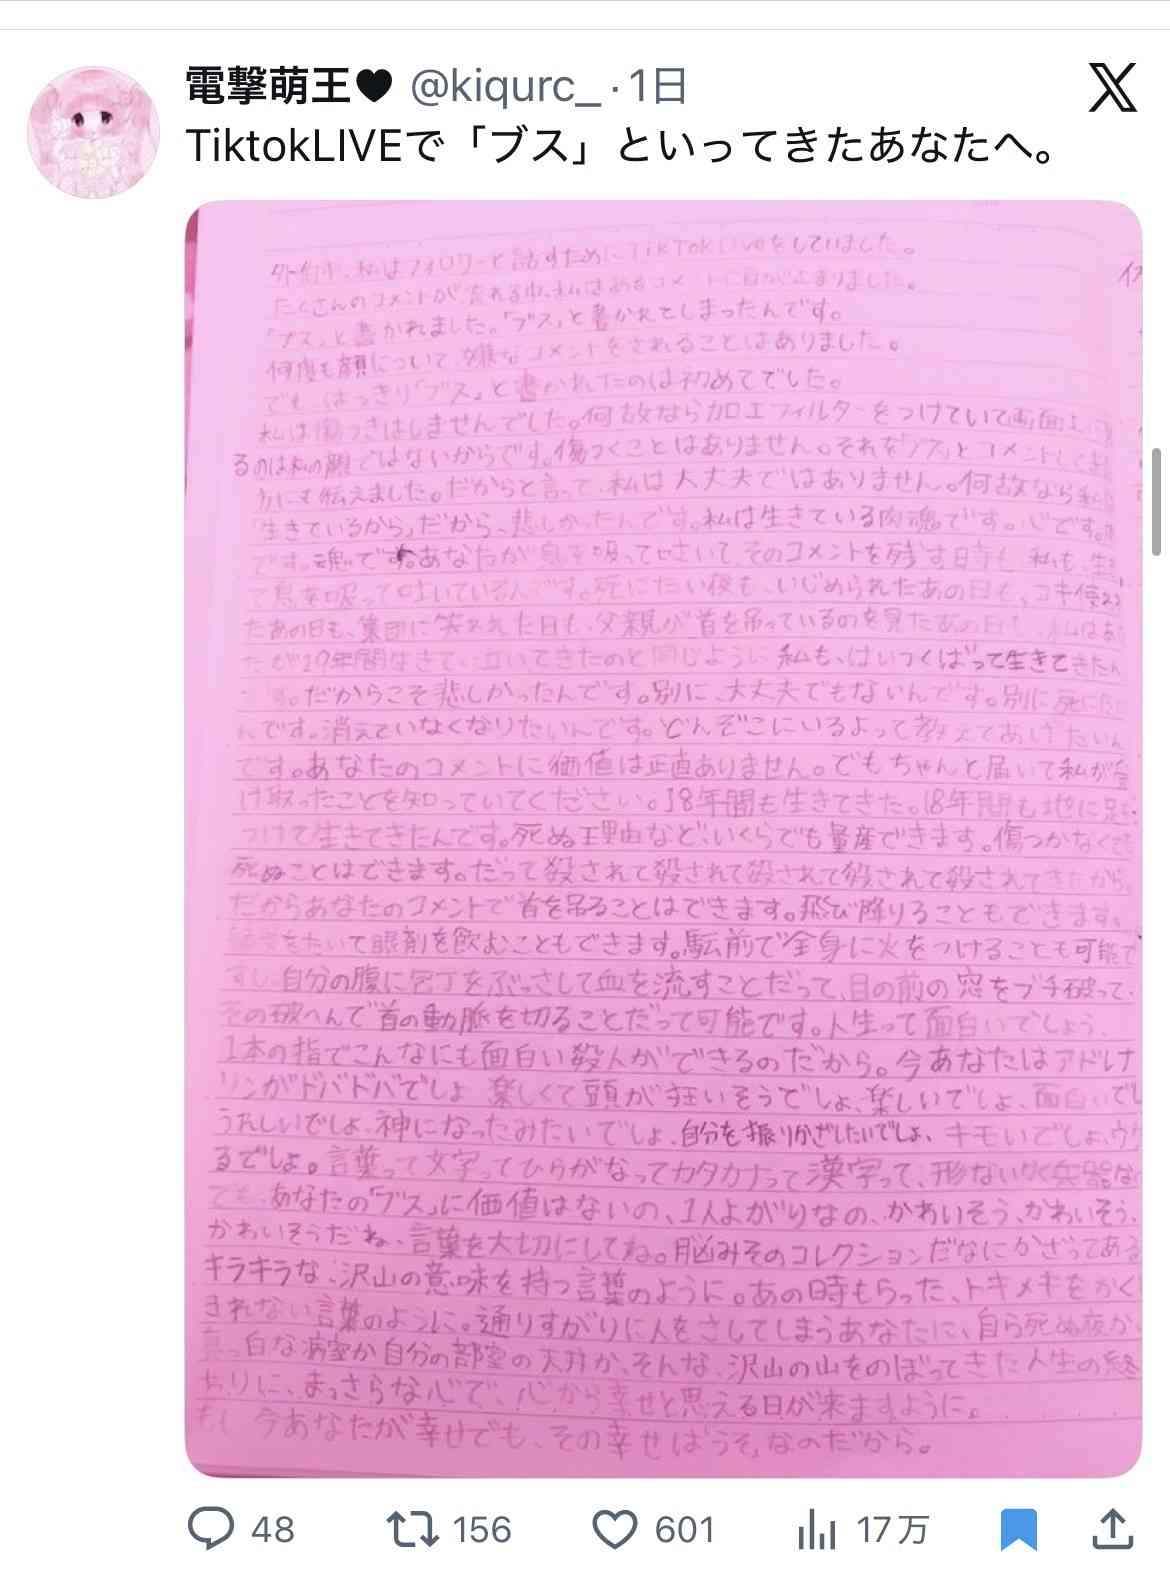 電撃萌王♥ @kiqurc_ · 1日
TiktokLIVEで「ブス」といってきたあなたへ。
私はフォロワーと話すためにTikTok Liveをしていました。
たくさんのコメントが流れる中、私はあるコメントに目が止まりました。
「ブス」と書かれました。「ブス」と書かれてしまったんです。
何度も顔について嫌なコメントをされることはありました。
でも、はっきり「ブス」と書かれたのは初めてでした。
私は傷つきはしませんでした。何故なら加工フィルターをつけていて画面上に
るのは私の顔ではないからです。傷つくことはありません。それを「ブス」とコメントしてくれ
にも伝えました。だからと言って、私は大丈夫ではありません。何故なら私
「生きているから」だから、悲しかったんです。私は生きている肉塊です。心です。
です。魂です。あなたが息を吸って吐いて、そのコメントを残す日時も、私も、生き
て息を吸って吐いているんです。死にたい夜も、いじめられたあの日も、コキ使わ
たあの日も、集団に笑われた日も、父親が首を吊っているのを見たあの日も、私はあ
たが19年間生きてきたのと同じように、私も、はいつくばって生きてきたん
す。だからこそ悲しかったんです。別に、大丈夫でもないんです。別に死にた
んです。消えていなくなりたいんです。どんぞこにいるよって教えてあげたいん
です。あなたのコメントに価値は正直ありません。でもちゃんと届いて私が受
け取ったことを知っていてください。18年間も生きてきた。18年間も地に足を
つけて生きてきたんです。死ぬ理由など、いくらでも量産できます。傷つかなくても
死ぬことはできます。だって殺されて殺されて殺されて殺されて殺されてきたから。
だからあなたのコメントで首を吊ることはできます。飛び降りることもできます。
をたいて眠剤を飲むこともできます。駅前で全身に火をつけることも可能で
すし、自分の腹に包丁をぶっさして血を流すことだって、目の前の窓をブチ破って、
その破へんで首の動脈を切ることだって可能です。人生って面白いでしょう、
1本の指でこんなにも面白い殺人ができるのだから。今あなたはアドレナ
リンがドバドバでしょ、楽しくて頭が狂いそうでしょ、楽しいでしょ、面白いでし
うれしいでしょ、神になったみたいでしょ、自分を振りかざしたいでしょ、キモいでしょ、ウケ
るでしょ。言葉って文字ってひらがなってカタカナって漢字って、形ない
でも、あなたの「ブス」に価値はないの、1人よがりなの、かわいそう、かわいそう、
かわいそうだね、言葉を大切にしてね。脳みそのコレクションだなにかざってある
キラキラな、沢山の意味を持つ言葉のように。あの時もらった、トキメキをかく
きれない言葉のように。通りすがりに人をさしてしまうあなたに、自ら死ぬ夜か、
真っ白な病室か自分の部屋の天井か、そんな、沢山の山をのぼってきた人生の終
わりに、まっさらな心で、心から幸せと思える日が来ますように。
もし、今あなたが幸せでも、その幸せは「うそ」なのだから。
48 156 601 17万